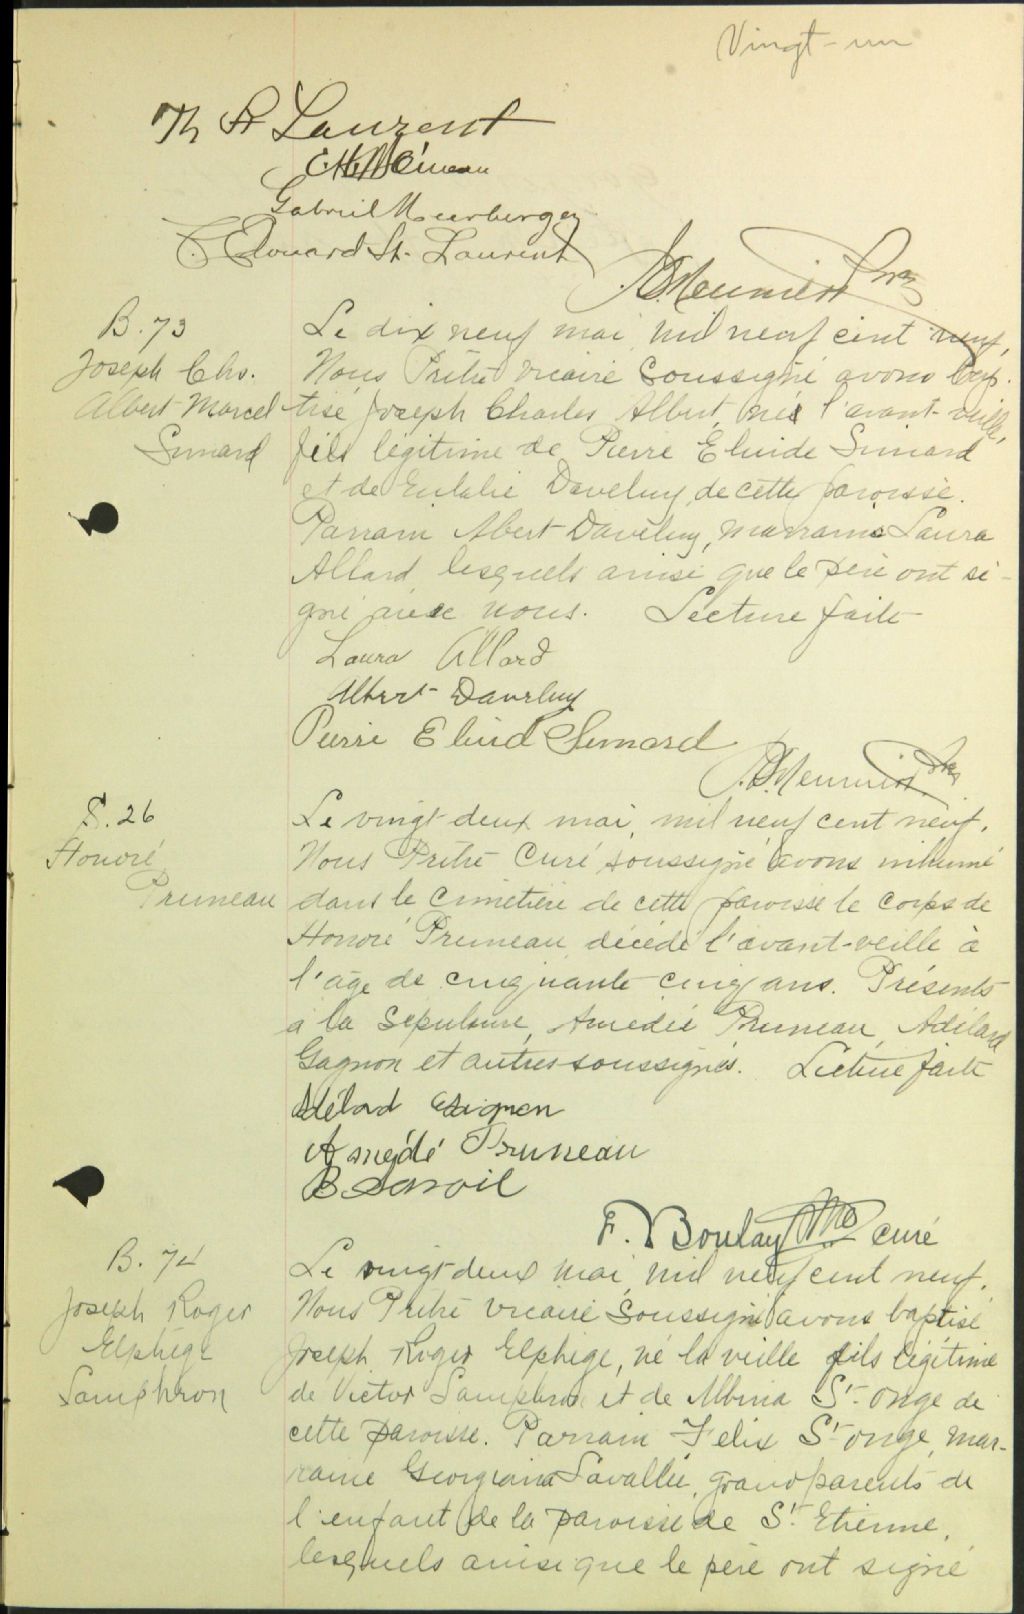 Vingt-un
Th St Laurent
Gabriel Meerberger
Edouard St-Laurent
Meunier Ptre
B. 73
Joseph Chs.
Albert Marcel
Simard
Le dix neuf mai, mil neuf cent neuf,
Nous Prêtre vicaire soussigné avons bap-
tisé Joseph Charles Albert, né l'avant-veille,
fils légitime de Pierre Elzide Simard
et de Eulalie Daveluy de cette paroisse.
Parrain Albert Daveluy, marraine Laura
Allard lesquels ainsi que le père ont si-
gné avec nous. Lecture faite
Laura Allard
Albert Daveluy
Pierre Elzid Simard
Meunier Ptre
S. 26
Honoré
Pruneau
Le vingt-deux mai, mil neuf cent neuf,
Nous Prêtre Curé soussigné avons inhumé
dans le cimetière de cette paroisse le corps de
Honoré Pruneau décédé l'avant-veille à
l'âge de cinquante cinq ans. Présents
à la sépulture, Amédée Pruneau, Adélard
Gagnon et autres soussignés. Lecture faite
Adélard Gagnon
Amédé Pruneau
B Savoie
F. Boulay Ptre curé
B. 74
Joseph Roger
Elphège
Lamphron
Le vingt-deux mai, mil neuf cent neuf,
Nous Prêtre vicaire soussigné avons baptisé
Joseph Roger Elphège, né la veille fils légitime
de Victor Lamphron et de Albina St-Onge de
cette paroisse. Parrain Felix St-onge, mar-
raine Georgiana Lavallée, grand parents de
l'enfant de la paroisse de St. Etienne,
lesquels ainsi que le père ont signé